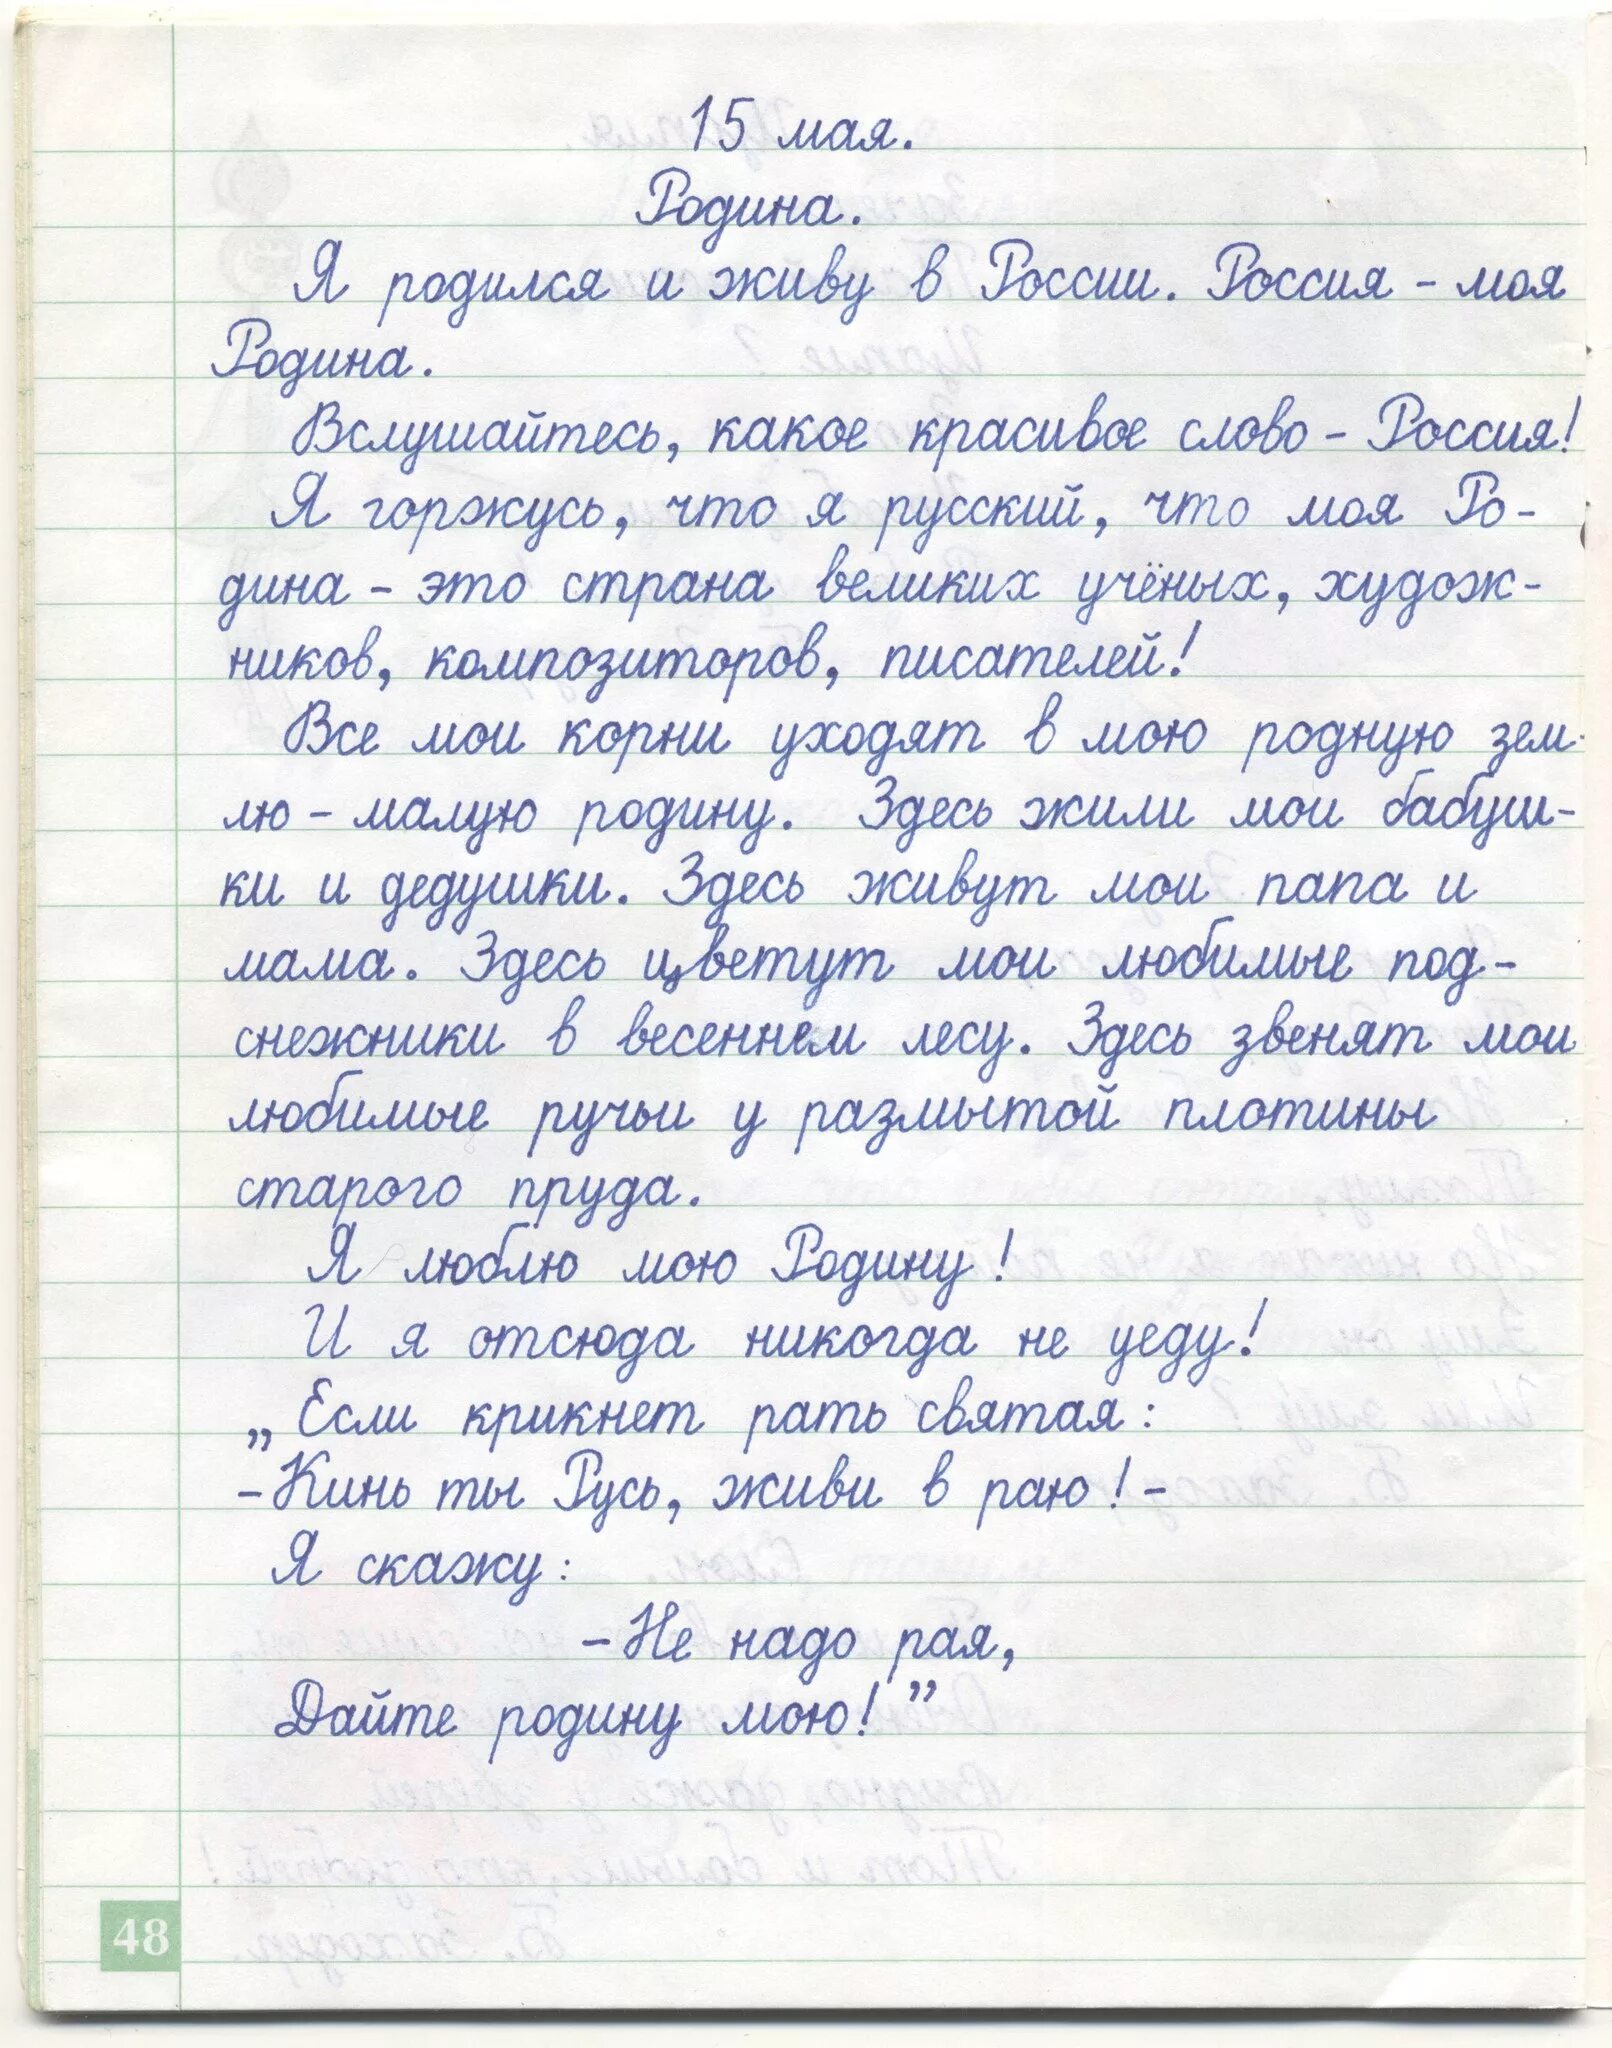 15 мая.
Родина.
Я родился и живу в России. Россия - моя
Родина.
Вслушайтесь, какое красивое слово - Россия!
Я горжусь, что я русский, что моя Ро-
дина - это страна великих учёных, худож-
ников, композиторов, писателей!
Все мои корни уходят в мою родную зем-
лю - малую родину. Здесь жили мои бабуш-
ки и дедушки. Здесь живут мои папа и
мама. Здесь цветут мои любимые под-
снежники в весеннем лесу. Здесь звенят мои
любимые ручьи у размытой плотины
старого пруда.
Я люблю мою Родину!
И я отсюда никогда не уеду!
„Если крикнет рать святая:
- Кинь ты Русь, живи в раю! -
Я скажу:
- Не надо рая,
Дайте родину мою!”
48